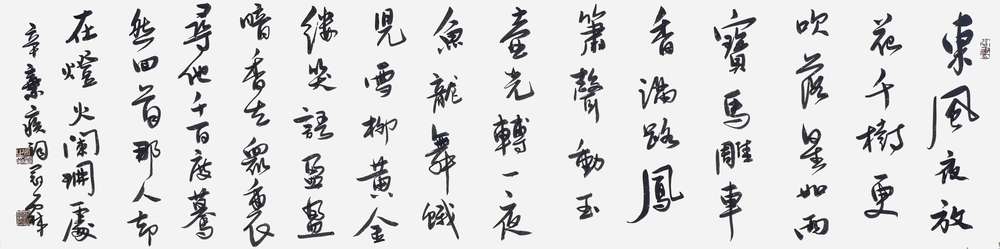 東風夜放
花千樹更
吹落星如雨
寶馬雕車
香滿路鳳
簫聲動玉
壺光轉一夜
魚龍舞蛾
兒雪柳黃金
縷笑語盈盈
暗香去眾裏
尋他千百度驀
然回首那人却
在燈火闌珊處
辛棄疾詞